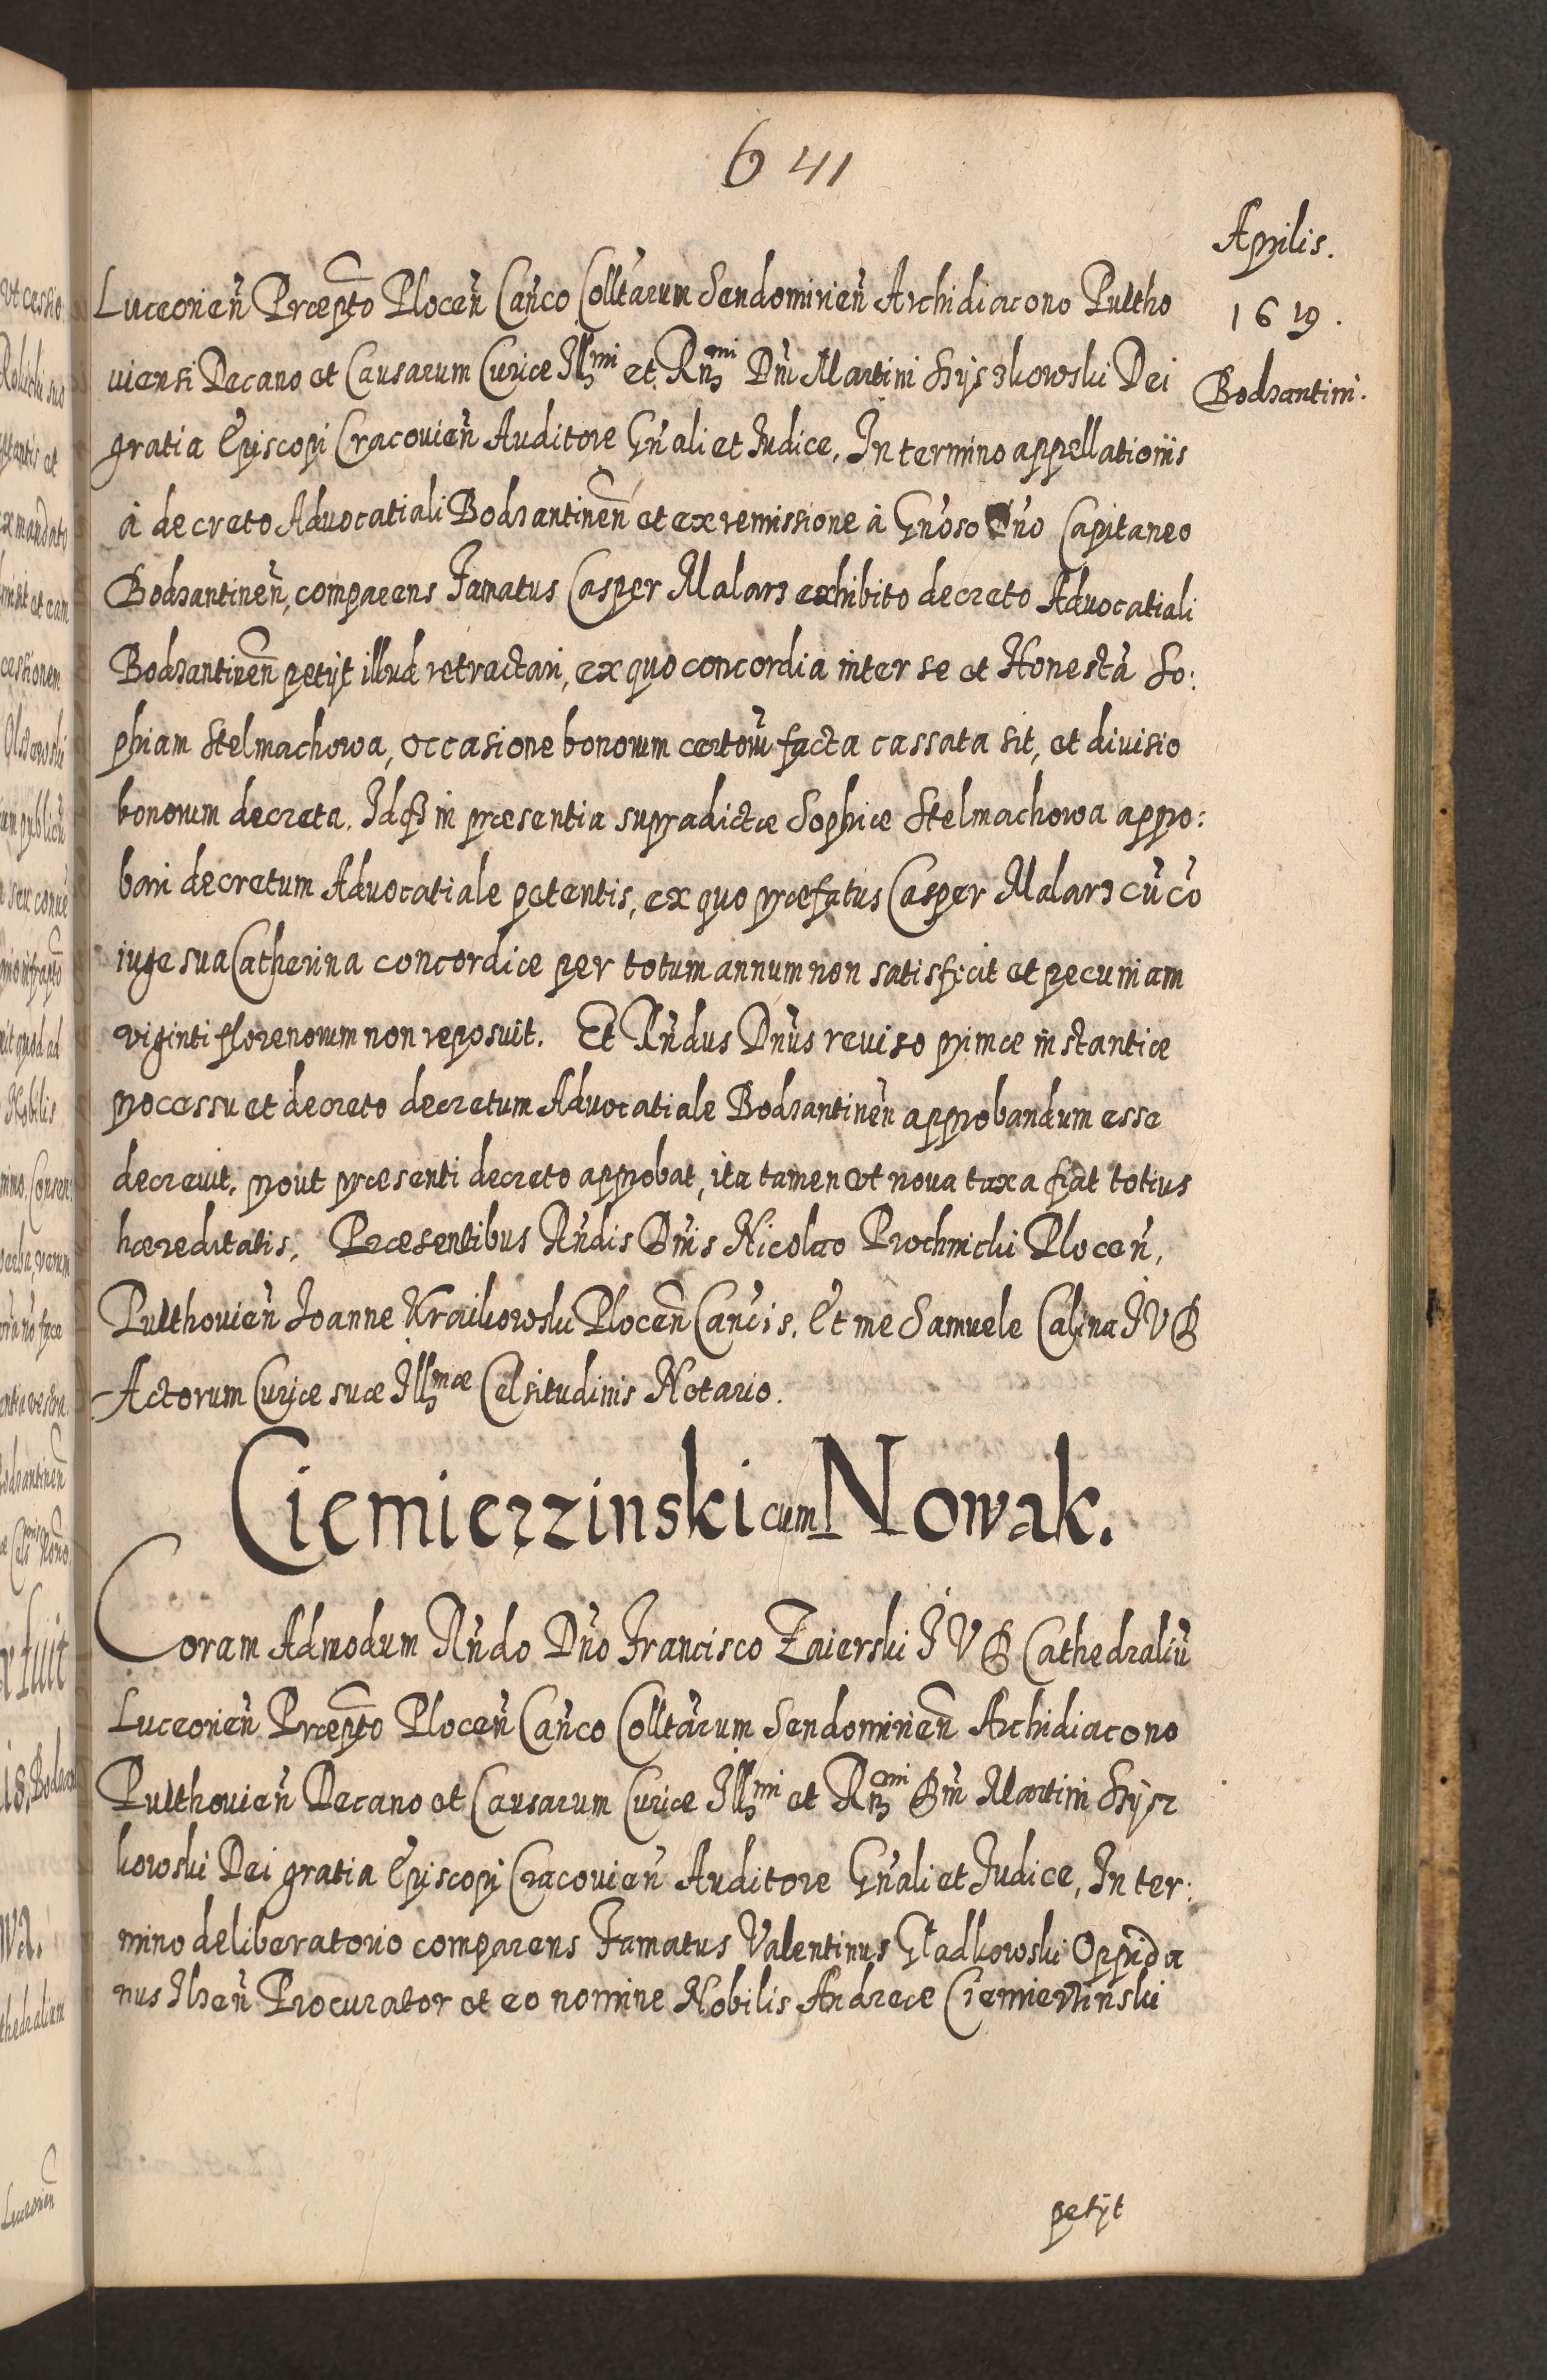 641
Aprilis.
1619.
Bodzantini.
Luceorien̄ Præpt̄o Plocen̄ Can̄co Collt̄arum Sendomirien̄ Archidiacono Pultho
uiensi Decano et Causarum Curiæ Illmi et Rnmi Dn̄i Martini Szyszkowski Dei
gratia Episcopi Cracouien̄ Auditore Gn̄ali et Iudice, In termino appellationis
à decreto Aduocatiali Bodzantinen̄ et ex remissione à Gn̄oso Dn̄o Capitaneo
Bodzantinen̄, comparens Famatus Casper Malarz exhibito decreto Aduocatiali
Bodzantinen̄ petijt illud retractari, ex quo concordia inter se et Honestā So:
phiam Stelmachowa, occasione bonorum certorū facta cassata sit, et diuisio
bonorum decreta. Idq3 in præsentia supradictæ Sophiæ Stelmachowa appro:
bari decretum Aduocatiale petentis, ex quo præfatus Casper Malarz cū cō
iuge sua Catherina concordiæ per totum annum non satisfecit et pecuniam
viginti florenorum non reposuit. Et Rn̄dus Dn̄us reuiso primæ instantiæ
processu et decreto decretum Aduocatiale Bodzantinen̄ approbandum esse
decreuit, prout præsenti decreto approbat, ita tamen vt noua taxa fiat totius
hæreditatis, Præsentibus Rn̄dis Dn̄is Nicolao Prochnicki Plocen̄,
Pulthouien̄ Ioanne Kraikowski Plocen̄ Can̄cis. Et me Samuele Calina I V D
Actorum Curiæ suæ Illmæ Celsitudinis Notario.
Ciemierzinski cum Nowak.
Coram Admodum Rn̄do Dn̄o Francisco Zaierski I V D Cathedraliū
Luceorien̄ Præpt̄o Plocen̄ Can̄co Collt̄arum Sendomirien̄ Archidiacono
Pulthouien̄ Decano et Causarum Curiæ Illmi et Rnmi Dn̄i Martini Szysz
kowski Dei gratia Episcopi Cracouien̄ Auditore Gn̄ali et Iudice, In ter:
mino deliberatorio comparens Famatus Valentinus Gładkowski Oppida
nus Ilzen̄ Procurator et eo nomine Nobilis Andreæ Ciemierzinski
petijt